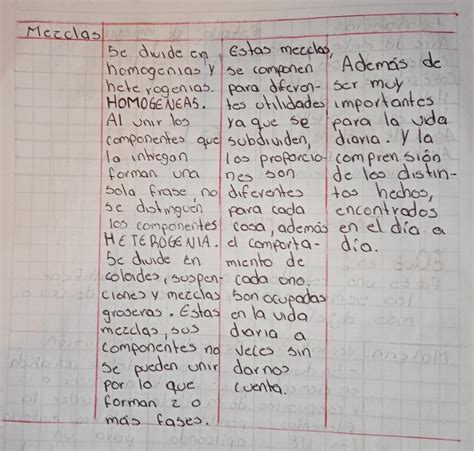 Mezclas
Se divide en
homogenias y
heterogenias.
HOMOGÉNEAS.
Al unir los
componentes que
la intregan
forman una
sola frase, no
se dstinguen
los componentes
HETEROGENIA.
Se divide en
coloides, suspen-
ciones y mezclas
groseras. Éstas
mezclas, sus
componentes no
se pueden unir
por lo que
forman 2 o
más fases.
Estas mezclas,
se componen
para diferen-
tes utilidades
ya que se
subdividen,
las proporcio-
nes son
diferentes
para cada
cosa, además
el comporta-
miento de
cada uno.
Son ocupadas
en la vida
diaria a
veces sin
darnos
cuenta.
Además de
ser muy
importantes
para la vida
diaria. Y la
comprensión
de los distin-
tos hechos,
encontrados
en el día a
día.